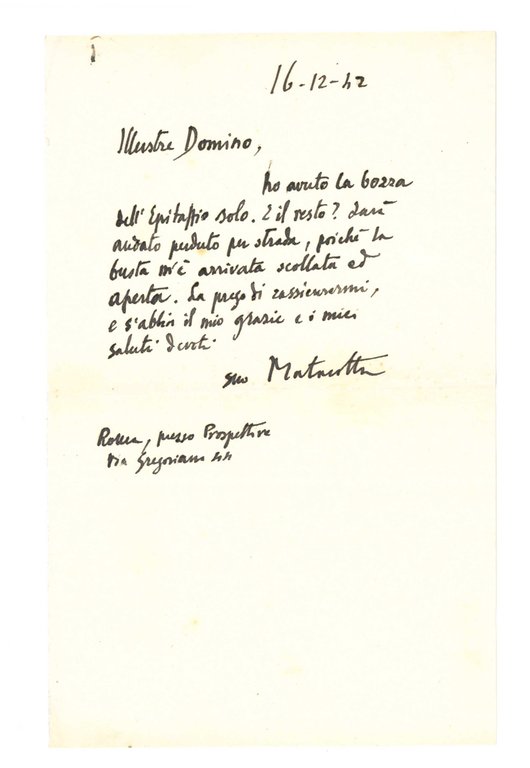 16-12-42
Illustre Domino,
ho avuto la bozza
dell'Epitaffio solo. E il resto? Sarà
andato perduto per strada, poichè la
busta m'è arrivata scollata ed
aperta. La prego di rassicurarmi,
e s'abbia il mio grazie e i miei
saluti devoti
suo Matacotta
Roma, presso Prospettive
Via Gregoriana 44